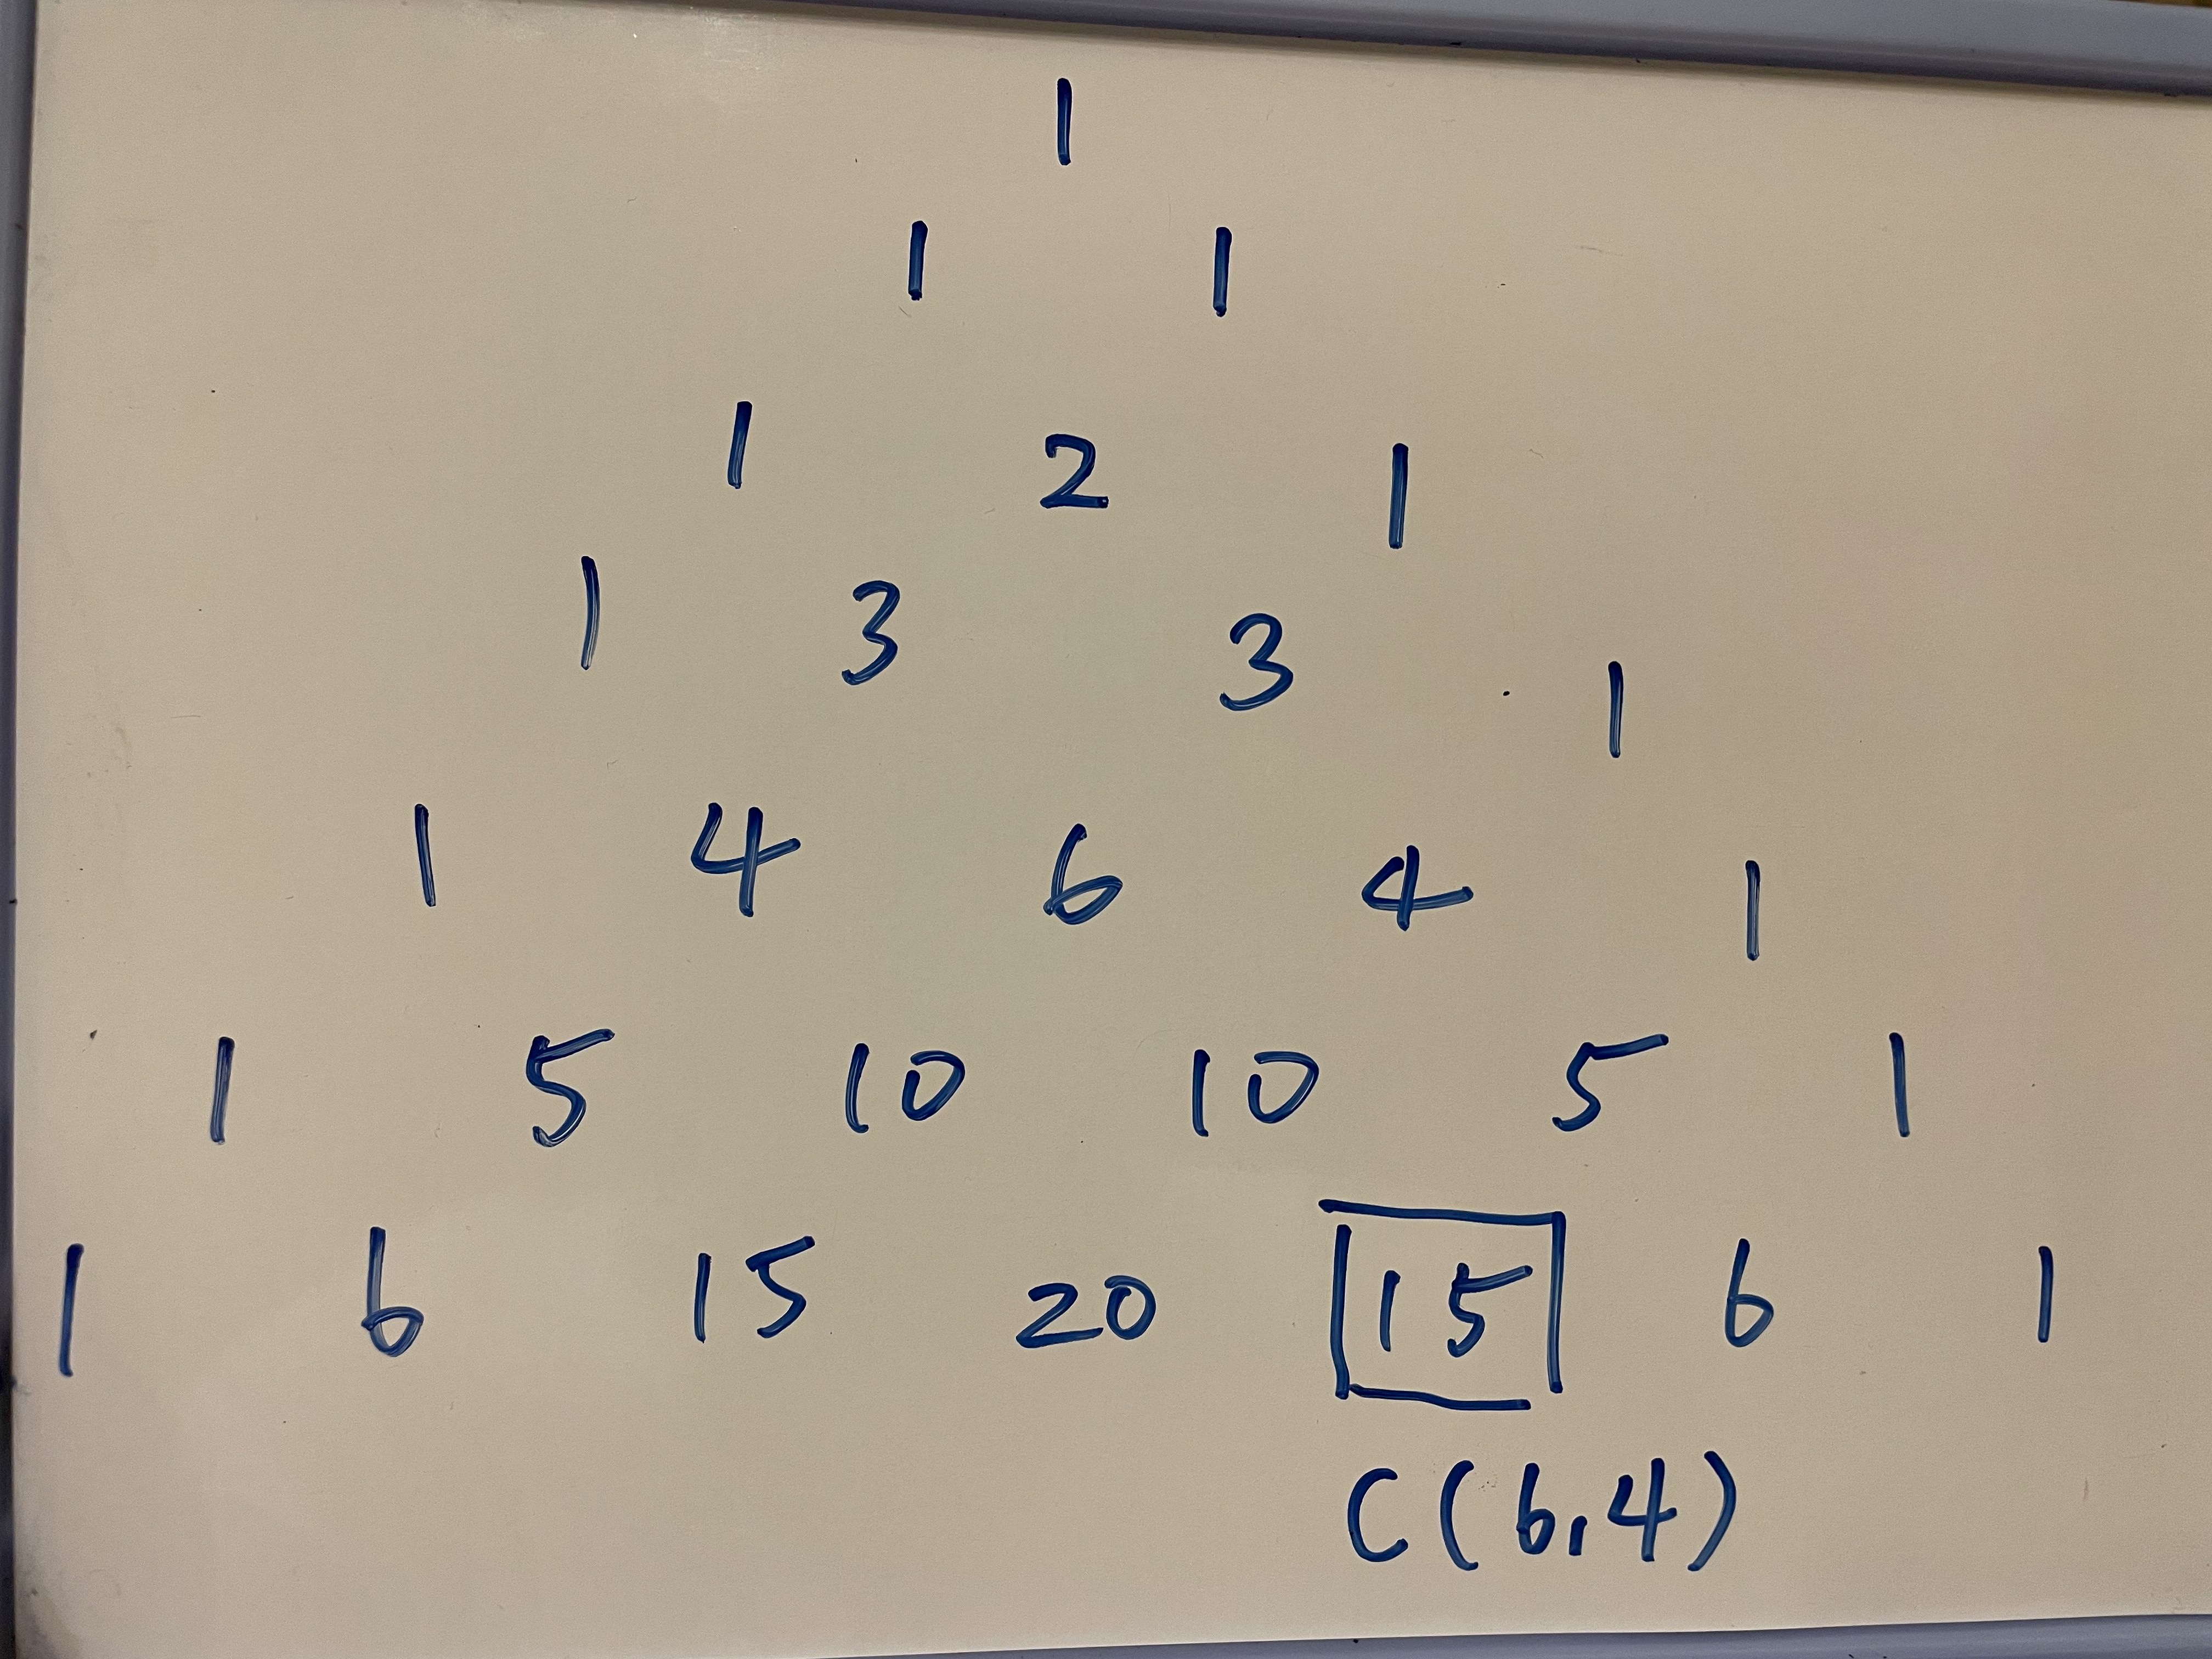 1
1 1
1 2 1
1 3 3 1
1 4 6 4 1
1 5 10 10 5 1
1 6 15 20 15 6 1
C(6,4)